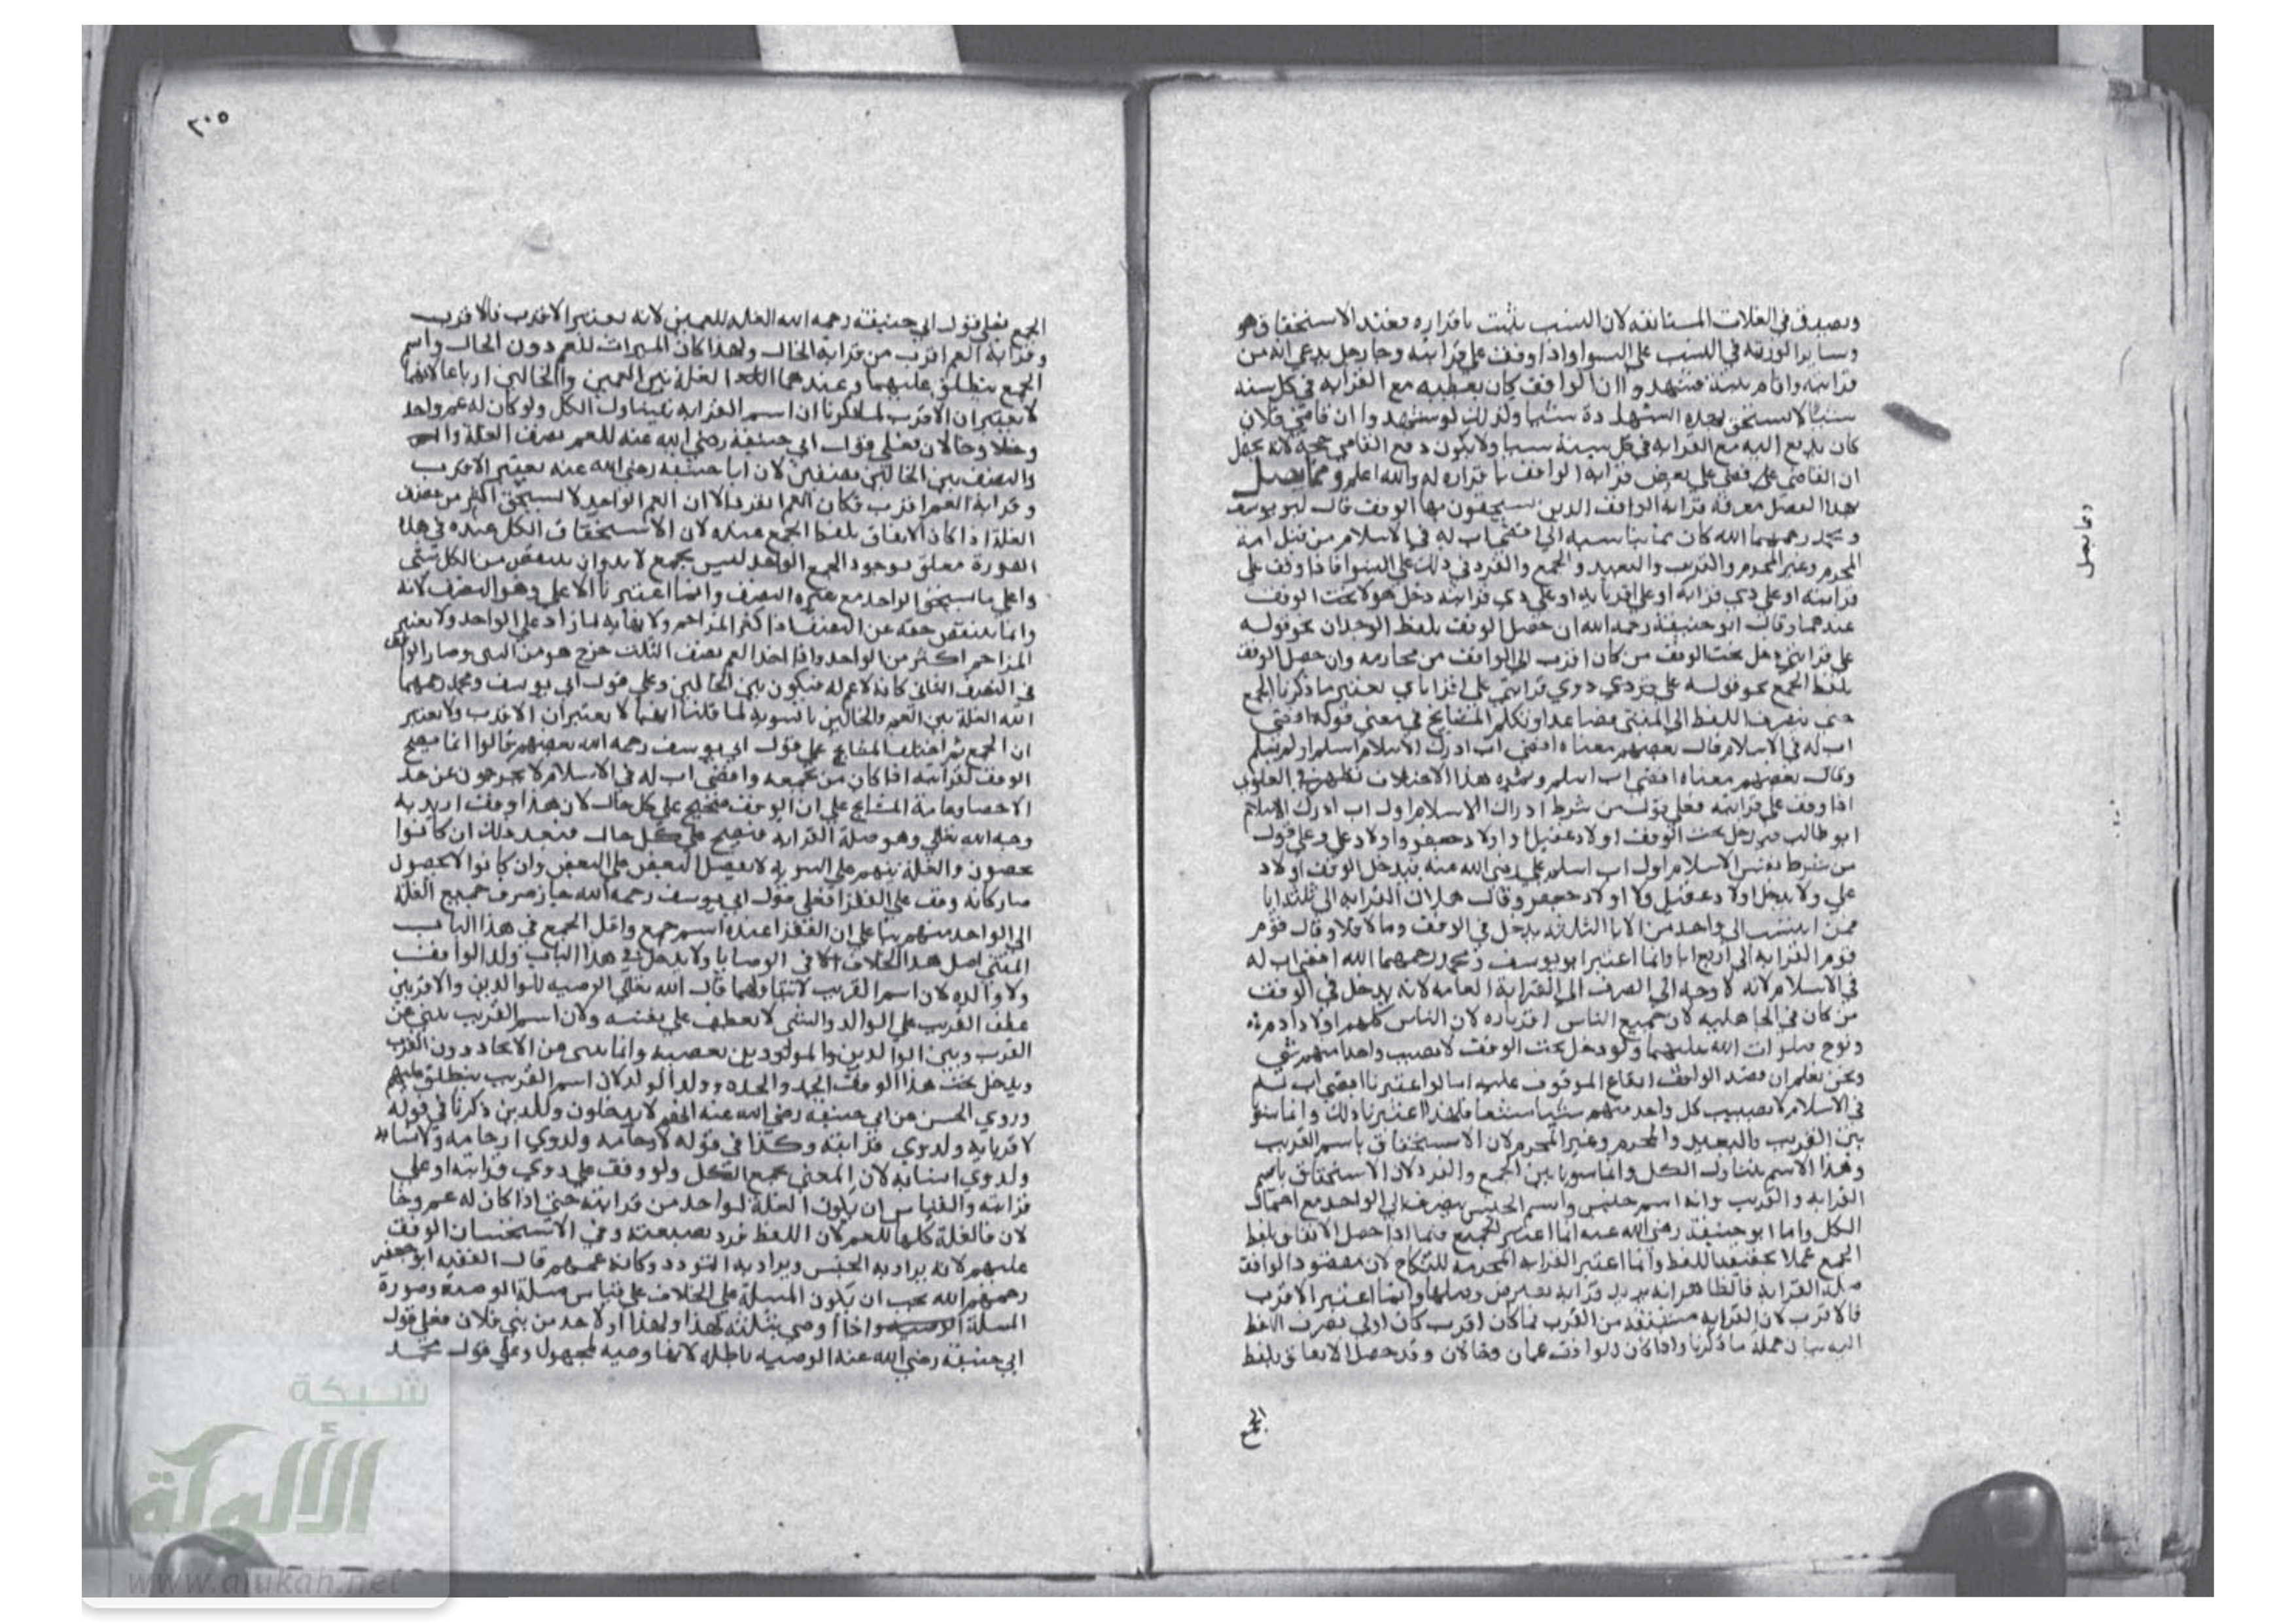 ويصدق في الغلات المستانفه لان النسب يثبت باقراره فعند الاستحقاق هو
وساير الورثة في النسب على السوا واذا وقف على قرابته وجا رجل يدعي انه من
قرابته واقام بينة فشهدوا ان الواقف كان يعطيه مع القرابه في كل سنه
شيا لا يستحق بهذه الشهادة شيا ولذلك لو شهدوا ان قاضي فلان
كان يدفع اليه مع القرابه في كل سنة شيا ولا يكون دفع القاضي حجة لانه يحمل
ان القاضي على بعض قرابه الواقف باقراره له والله اعلم ومما يتصل
بهذا الفصل معرفة قرابة الواقف الذين يستحقون بها الوقف قال ابو يوسف
ومحمد رحمهما الله كل من يناسبه الى اقصى اب له في الاسلام من قبل ابيه
المحرم وغير المحرم والقريب والبعيد والجمع والفرد في ذلك على السوا فاذا وقف على
قرابته او على ذي قرابة او على اقربايه او على ذي قرابته دخل هولا تحت الوقف
عندهما وقال ابو حنيفة رحمه الله ان حصل الوقف بلفظ الوحدان نحو قوله
على قرابتي دخل تحت الوقف من كان اقرب الى الواقف من محارمه وان حصل الوقف
بلفظ الجمع نحو قوله على ذوي قرابتي على اقرباي يعتبر ما ذكرنا الجمع
حتى ينصرف اللفظ الى المثنى فصاعدا وتكلم المشايخ في معنى قوله اقصى
اب له في الاسلام قال بعضهم معناه اقصى اب ادرك الاسلام اسلم او لم يسلم
وقال بعضهم معناه اقصى اب اسلم وثمرة هذا الاختلاف تظهر في العلوي
اذا وقف على قرابته فعلى قول من شرط ادراك الاسلام اول اب ادرك الاسلام
ابو طالب فيدخل تحت الوقف اولاد عقيل واولاد جعفر واولاد علي وعلى قول
من شرط نفس الاسلام اول اب اسلم علي رضي الله عنه فيدخل الوقف اولاد
علي ولا يدخل اولاد عقيل ولا اولاد جعفر وقال هلال القرابه الى ثلثة ابا
فمن انتسب الى واحد من الابا الثلثة يدخل في الوقف وما لا فلا وقال قوم
قوم القرابه الى اربع ابا وانما اعتبر ابو يوسف ومحمد رحمهما الله اقصى اب له
في الاسلام لانه لا وجه الى الصرف الى القرابة العامه لانه يدخل في الوقف
من كان في الجاهليه لان جميع الناس اقرباوه لان الناس كلهم اولاد ادم
ونوح صلوات الله عليهما ولو دخل تحت الوقف لا يصيب واحدا منهم شي
ونحن نعلم ان قصد الواقف انتفاع الموقوف عليه اما لو اعتبرنا اقصى اب له
في الاسلام لا يصيب كل واحد منهم شيا منتفعا فلهذا اعتبرنا ذلك وانما سوى
بين القريب والبعيد والمحرم وغير المحرم لان الاستحقاق باسم القريب
وهذا الاسم يتناول الكل وانما سويا بين الجمع والفرد لان الاستحقاق باسم
القرابه والقريب وانه اسم جنس واسم الجنس يصرف الى الواحد مع احتمال
الكل واما ابو حنيفة رضي الله عنه انما اعتبر الجميع فيما اذا حصل الاتفاق بلفظ
الجمع عملا بحقيقة اللفظ وانما اعتبر القرابه المحرمه للنكاح لان مقصود الواقف
صلة القرابة فالظاهر انه يريد قرابة يفترض وصلها وانما اعتبر الاقرب
فالاقرب لان القرابه مشتقة من القرب فما كان اقرب كان اولى بصرف اللفظ
اليه بيان جملة ما ذكرنا واذا كان للواقف عمان وخالان وقد حصل الايقاف بلفظ
الجمع
ومما يتصل
٢٠٥
الجمع فعلى قول ابي حنيفة رحمه الله الغله للعمين لانه يعتبر الاقرب فالاقرب
وقرابة العم اقرب من قرابة الخال ولهذا كان الميراث للعم دون الخال واسم
الجمع ينطلق عليهما وعندهما الغلة بين العمين والخالين ارباعا لانهما
لا يعتبران الاقرب لما ذكرنا ان اسم القرابه يتناول الكل ولو كان له عم واحد
وخالان فعلى قول ابي حنيفة رضي الله عنه للعم نصف الغلة
والنصف بين الخالين نصفين لان ابا حنيفه رضي الله عنه يعتبر الاقرب
وقرابة العم اقرب فكان العم انفرد الا ان العم الواحد لا يستحق اكثر من نصف
الغلة اذا كان الايقاف بلفظ الجمع عنده لان الاستحقاق الكل عنده في هذه
الصورة معلق بوجود الجمع الواحد ليس بجمع لا بد وان ينتقص من الكل شي
واعلى ما يستحق الواحد مع غيره النصف وانما اعتبرنا الاعلى وهو النصف لانه
وانما ينتقص حقه عن النصف اذا كثر المزاحم ولا نهاية لما زاد على الواحد ولا يعتبر
المزاحم اكثر من الواحد واذا اخذ العم نصف الثلث خرج هو من البين وصار الواقف
في النصف الثاني كانه لا عم له فيكون بين الخالين وعلى قول ابي يوسف ومحمد رحمهما
الله الغلة بين العم والخالين بالسويه لما قلنا انهما لا يعتبران الاقرب ولا يعتبر
ان الجمع ثم اختلف المشايخ على قول ابي يوسف رحمه الله بعضهم قالوا انما يصح
الوقف لقرابته اذا كان من يجمعه واقصى اب له في الاسلام لا يخرجون عن حد
الاحصا وعامة المشايخ على ان الوقف صحيح على كل حال لان هذا وقف اريد به
وجه الله تعالى وهو صلة القرابه فيصح على كل حال فبعد ذلك ان كانوا
يحصون والغلة بينهم على السويه لا يفضل البعض على البعض وان كانوا لا يحصون
صار كانه وقف على الفقرا فعلى قول ابي يوسف رحمه الله جاز صرف جميع الغلة
الى الواحد منهم بنا على ان الفقرا عنده اسم جمع واقل الجمع في هذا الباب
المثنى اصل هذا الخلاف في الوصايا ولا يدخل في هذا الباب ولد الواقف
ولا والده لان اسم القريب لا يتناولهما قال الله تعالى الوصيه للوالدين والاقربين
عطف القريب على الوالد والشي لا يعطف على نفسه ولان اسم القريب ينبي عن
القرب وبين الوالدين والمولودين بعضيه وانما ينبي عن الاتحاد دون القرب
ويدخل تحت هذا الوقف الجد والجده وولد الولد لان اسم القريب ينطلق عليهم
وروي الحسن عن ابي حنيفة رضي الله عنه انهم لا يدخلون وكالذي ذكرنا في قوله
لاقربايه ولذوي قرابته وكذا في قوله لارحامه ولذوي ارحامه ولانسابه
ولذوي انسابه لان المعنى يجمع الكل ولو وقف على ذوي قرابته او على
قرابته والقياس ان يكون الغلة لواحد من قرابته حتى اذا كان له عم وخا
لان فالغلة كلها للعم لان اللفظ فرد بصيغته وفي الاستحسان الوقف
عليهم لانه يراد به الجنس ويراد به التودد وكانه عمهم قال الفقيه ابو جعفر
رحمهم الله يجب ان يكون المسلة على الخلاف على قياس مسلة الوصية وصورة
المسلة اذا اوصى بثلثه لهذا ولهذا او لاحد من بني فلان فعلى قول
ابي حنيفة رضي الله عنه الوصيه باطله لانها وصيه لمجهول وعلى قول محمد
شبكة
الألوكة
www.alukah.net